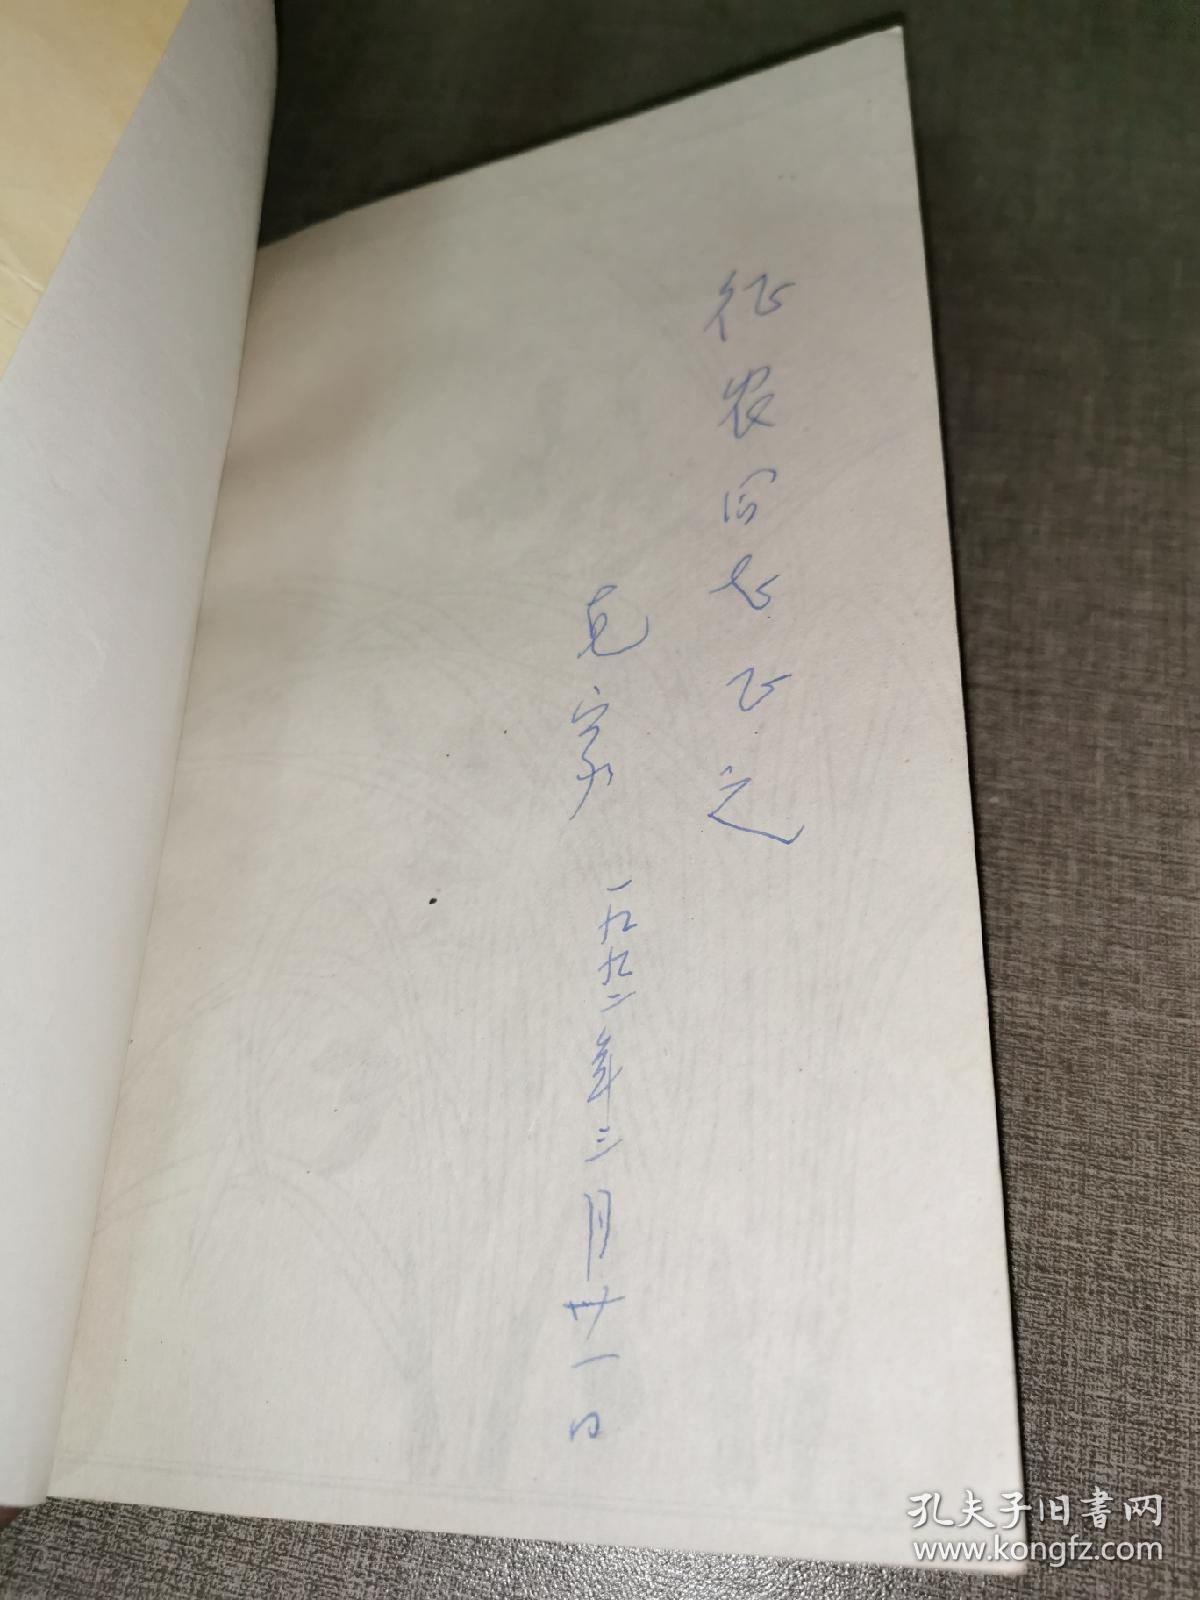 征农同志正之
克家
一九九二年三月廿一日
孔夫子旧书网
www.kongfz.com